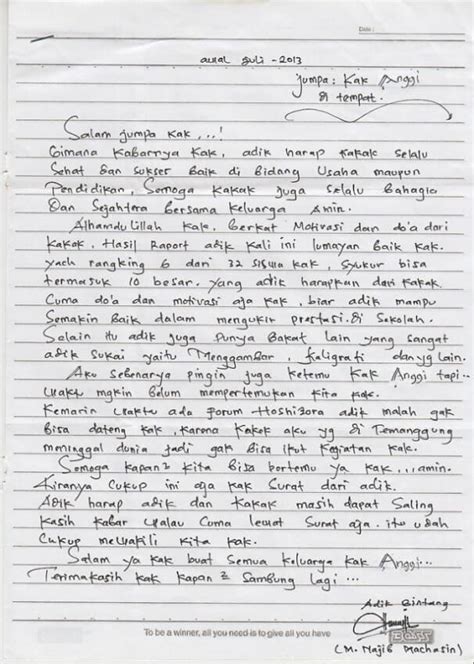 Date :
awal Juli - 2013
Jumpa : Kak Anggi
di tempat.
Salam jumpa kak...!
Gimana kabarnya kak, adik harap kakak selalu
Sehat dan sukses baik di bidang usaha maupun
Pendidikan, Semoga kakak juga selalu bahagia
Dan sejahtera bersama keluarga Amin.
Alhamdulillah kak. berkat. Motivasi dan do'a dari
kakak. Hasil Raport adik kali ini lumayan baik kak.
yach rangking 6 dari 32 siswa kak, syukur bisa
termasuk 10 besar. yang adik harapkan dari kakak.
Cuma do'a dan motivasi aja kak, biar adik mampu
Semakin baik dalam mengukir prestasi di sekolah.
Selain itu adik juga punya bakat lain yang sangat
adik sukai yaitu Menggambar, kaligrafi dan yg lain.
Aku sebenarya pingin juga ketemu kak Anggi tapi..
waktu mgkin belum mempertemukan kita kak.
Kemarin waktu ada forum Hoshizora adik malah gak
bisa dateng kak, karena kakek aku yg di Temanggung
meninggal dunia jadi gak bisa ikut kegiatan kak.
Semoga kapan2 kita bisa bertemu ya kak...amin.
Kiranya cukup ini aja kak surat dari adik.
Adik harap adik dan kakak masih dapat saling
kasih kabar walau cuma lewat surat aja. itu udah
Cukup mewakili kita kak.
Salam ya kak buat semua keluarga kak Anggi...
Terimakasih kak kapan2 sambung lagi...
Adik Bintang
To be a winner, all you need is to give all you have
(M. Najib Machasin)